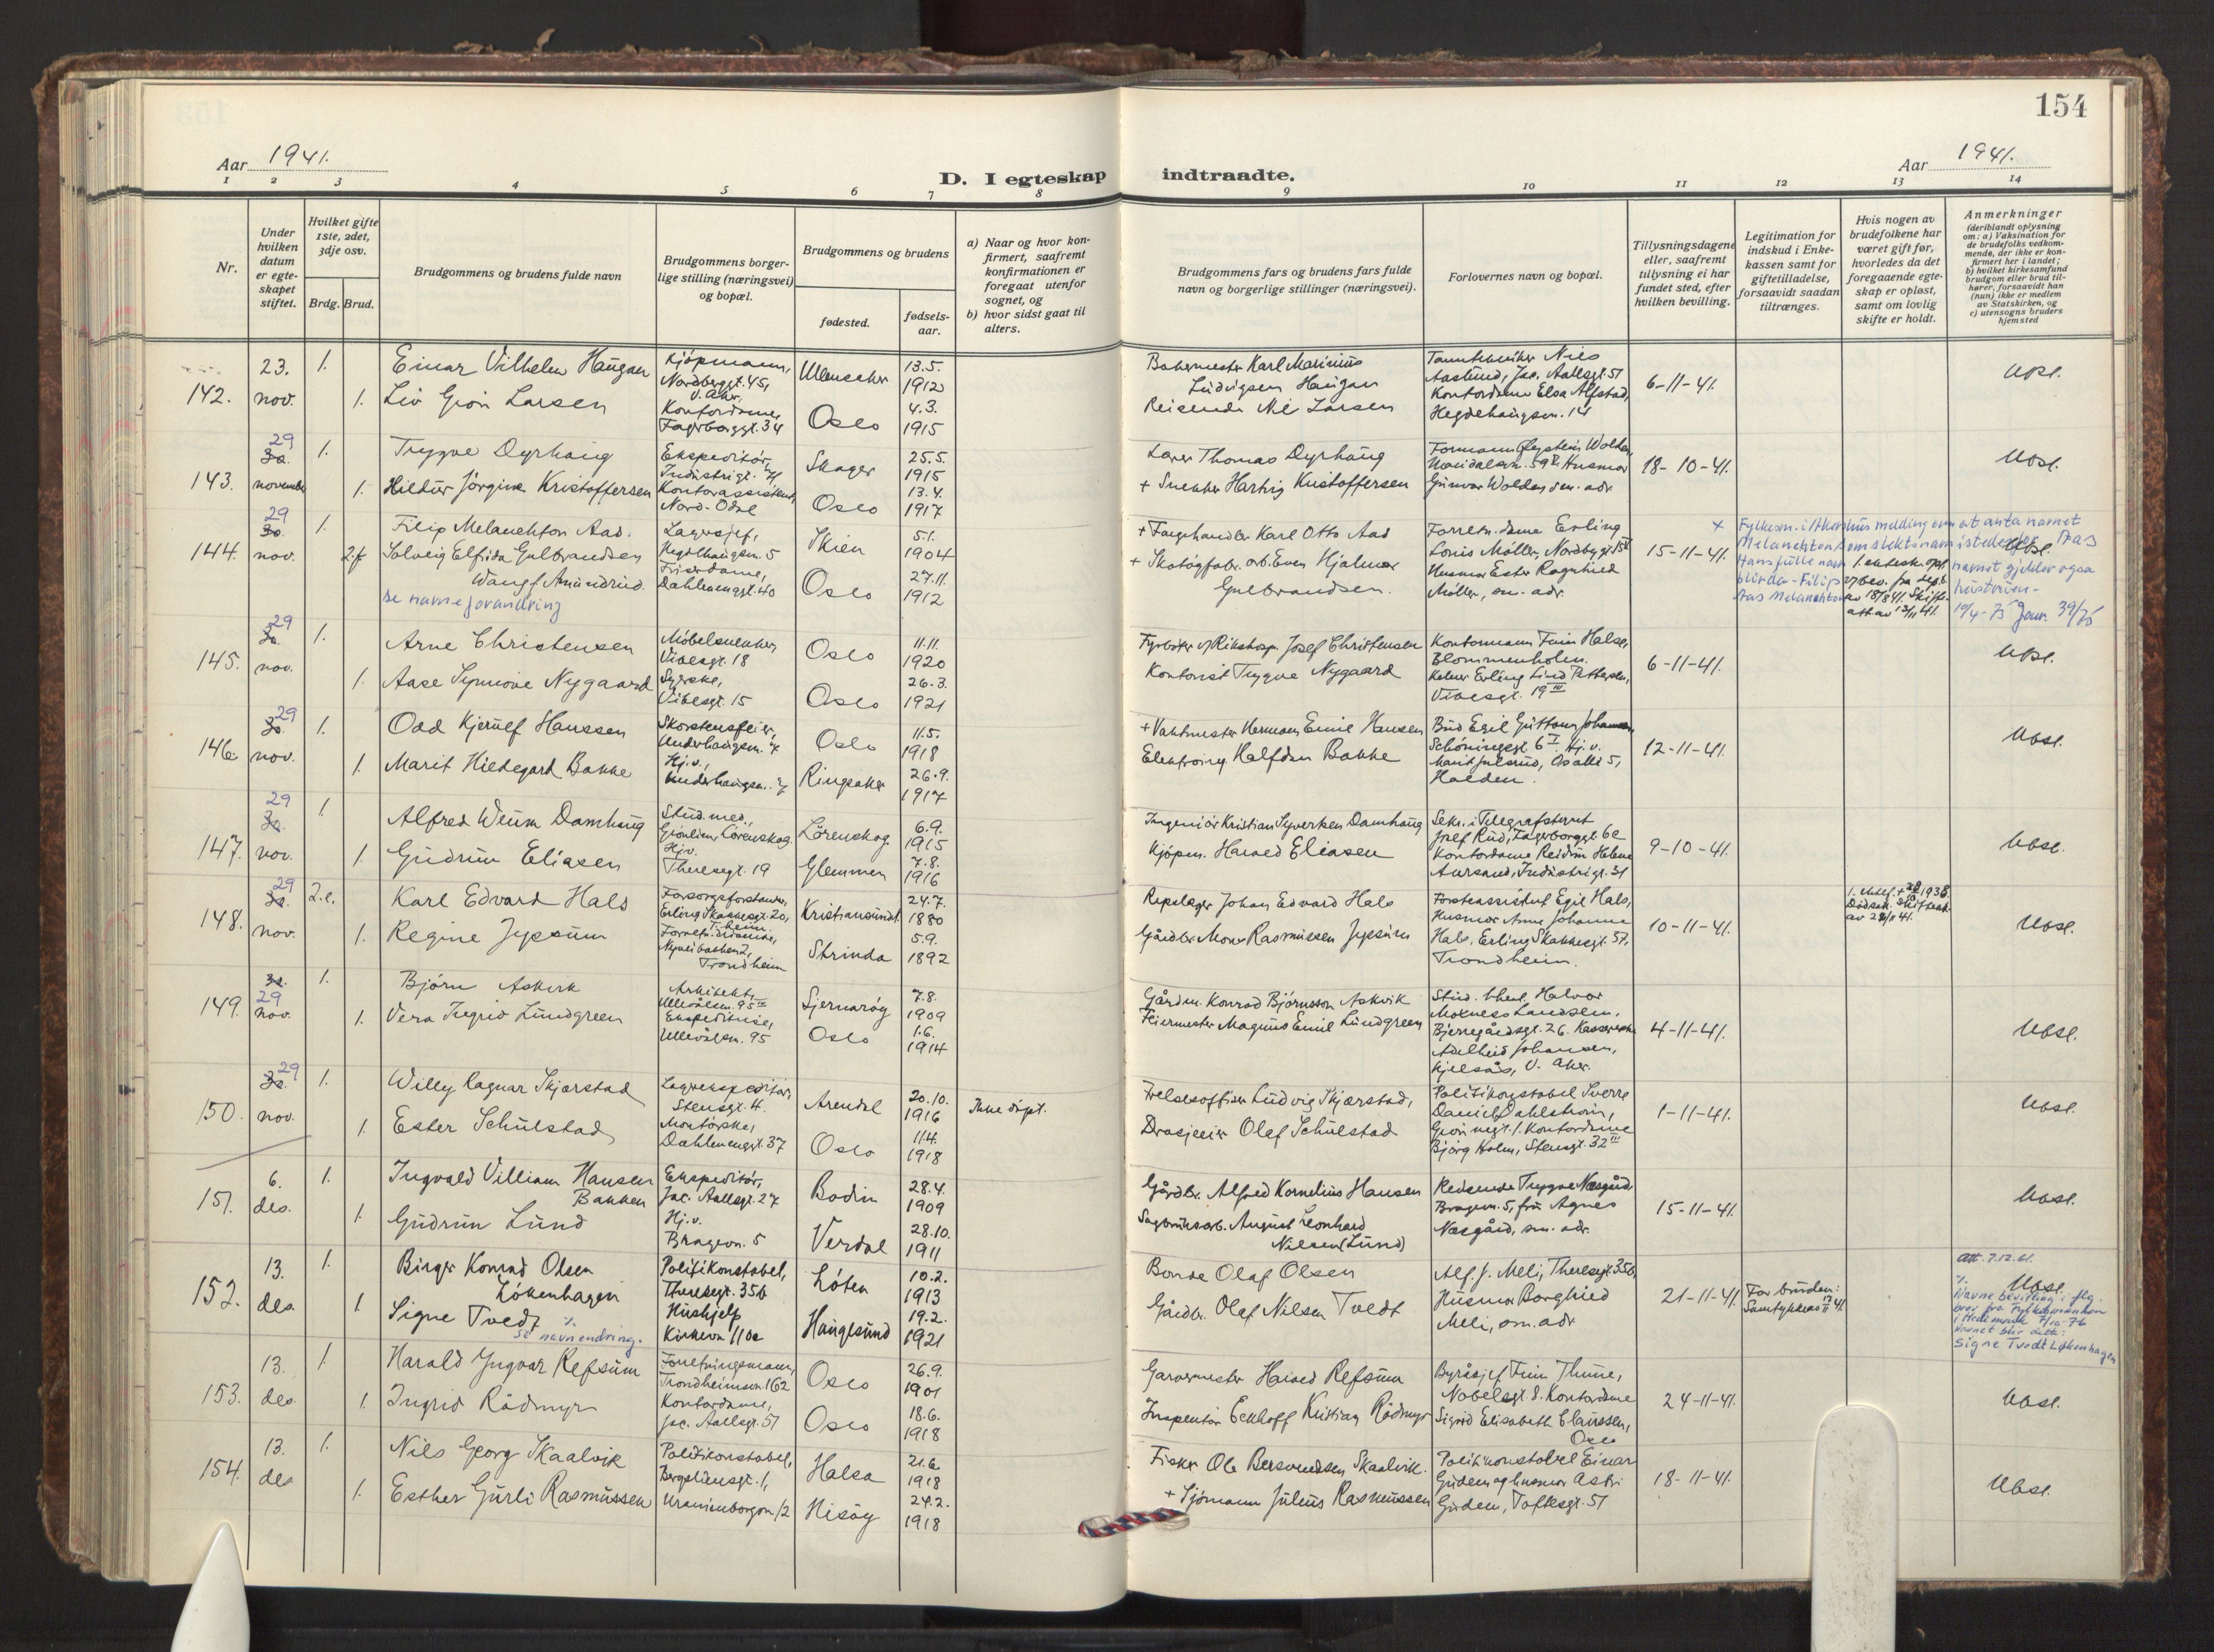 154
Aar 1941.
D. I egteskap indtraadte.
Aar 1941.
1 2 3 4 5 6 7 8 9 10 11 12 13 14
Nr.
Under hvilken datum er egte-skapet stiftet.
Hvilket gifte 1ste, 2det, 3dje osv.
Brdg. Brud.
Brudgommens og brudens fulde navn
Brudgommens borger-lige stilling (næringsvei) og bopæl.
Brudgommens og brudens
fødested.
fødsels-aar.
a) Naar og hvor kon-firmert, saafremt konfirmationen er foregaat utenfor sognet, og
b) hvor sidst gaat til alters.
Brudgommens fars og brudens fars fulde navn og borgerlige stillinger (næringsvei).
Forlovernes navn og bopæl.
Tillysningsdagene eller, saafremt tillysning ei har fundet sted, efter hvilken bevilling.
Legitimation for indskud i Enke-kassen samt for giftetilladelse, forsaavidt saadan tiltrænges.
Hvis nogen av brudefolkene har været gift før, hvorledes da det foregaaende egte-skap er opløst, samt om lovlig skifte er holdt.
Anmerkninger
(deriblandt oplysning om: a) Vaksination for de brudefolks vedkom-mende, der ikke er kon-firmert her i landet; b) hvilket kirkesamfund brudgom eller brud til-hører, forsaavidt han (hun) ikke er medlem av Statskirken, og c) utensogns bruders hjemsted
142. 23. nov. 1. Einar Vilhelm Haugan Kjøpmann, Nordberggt. 45, V. Aker, Ullensaker 13.5. 1912 Bakermester Karl Marinius Ludvigsen Haugan Tanntekniker Nils Aaslund, Jac. Aallsgt. 51 6-11-41. Ubsl.
1. Liv Gron Larsen Kontordame, Fagerborggt. 34 Oslo 4.3. 1915 Reisende Nil Larsen Kontordame Elsa Alfstad, Hegdehaugsvn. 14
143. 29 november 1. Trygve Dyrhaug Ekspeditør, Industrigt. Skager 25.5. 1915 Lærer Thomas Dyrhaug Formann Øystein Wolden, Husmor 18-10-41. Ubsl.
1. Hildur Jørgine Kristoffersen Kontorassistent, Nord-Odal Oslo 13.4. 1917 + Snekker Hartvig Kristoffersen Gunvor Wolden sm. adr.
144. 29 nov. 1. Filip Melanchton Aas. Lagersjef, Hegdehaugsvn. 5 Skien 5.1. 1904 + Fargehandler Karl Otto Aas Forretn.dame Erling Louis Møller, 15-11-41. Ubsl.
2.f Solveig Elfrida Gulbrandsen Wangf Amundrud. Frisørdame, Dahlenenggt. 40 Oslo 27.11. 1912 + Skotøyfabr. arb. Even Hjalmar Gulbrandsen. Husmor Ester Ragnhild Møller, sm. adr.
se navneforandring
x Fylkesm. i Akershus melding om at anta navnet Melanchton som slektsnavn istedenfor Aas
Hans fulle navn blir da - Filip Aas Melanchton
navnet gjelder også hustruen - 10/4-75 Jour. 39/75
1. ekteskap. opl. v/ bev. fra av 18/8 41. Skifte- att av 13/11 41.
145. 29 nov. 1. Arne Christensen Møbelsnekker, Vibesgt. 18 Oslo 11.11. 1920 Fyrbøter v/ Rikshosp. Josef Christensen Kontormann Finn Halse, Blommenholm. 6-11-41. Ubsl.
1. Aase Synnøve Nygaard Syerske, Vibesgt. 15 Oslo 26.3. 1921 Kontorist Trygve Nygaard Kelner Erling Lind Pettersen, Vibesgt. 19 III
146 29 nov. 1. Odd Kjerulf Hanssen Skorstensfeier, Underhaugsvn. 7 Oslo 11.5. 1918 + Vaktmester Herman Emil Hansen Bud Egil Guttorm Johansen Schøningsgt. 6 I. Hj.v. 12-11-41. Ubsl.
1. Marit Hildegard Bakke Hj.v., Underhaugsvn. 7 Ringsaker 26.9. 1917 Elektroing. Halfdan Bakke Marit Julsrud, Os allé 5, Halden.
147. 29 nov. 1. Alfred Wium Damhaug Stud. med., Grønlien, Lørenskog. Lørenskog. 6.9. 1915 Ingeniør Kristian Syversen Damhaug Sekr. i Telegrafstyret Josef Rud, Fagerborggt. 6c 9-10-41. Ubsl.
1. Gudrun Eliasen Hj.v. Theresegt. 19 Glemmen 7.8. 1916 Kjøpm. Harald Eliasen Kontordame Reidun Helene Aursand, Industrigt. 31
148. 29 nov. 2.e. Karl Edvard Hals Forsorgsforstander, Erling Skakkesgt. 20, T.heim Kristiansund 24.7. 1880 Repslager Johan Edvard Hals Forstassistent Egil Hals, 10-11-41. 1. ektef. + 1938 Dødsatt. Skifteatt. av 28/11 41. Ubsl.
1. Regine Jypsum Forretn.dame, Trondheim Strinda 5.9. 1892 Gårdbr. Mons Rasmussen Jypsum Husmor Anne Johanne Hals, Erling Skakkesgt. 57, Trondheim.
149. 29 nov. 1. Bjørn Askvik Arkitekt, Ullevålsvn. 95 III Sjernarøy 7.8. 1909 Gårdm. Konrad Bjørnsson Askvik Stud. theol. Halvor Mokness Landsem, 4-11-41. Ubsl.
1. Vera Ingrid Lundgreen Ekspeditrise, Ullevålsvn. 95 Oslo 1.6. 1914 Feiermester Magnus Emil Lundgreen Bjerregårdsgt. 26. Adelheid Johansen, Kjelsås, V. Aker.
150. 29 nov. 1. Willy Ragnar Skjærstad Lagerekspeditør, Stensgt. 4. Arendal 20.10. 1916 Ikke døpt. Frelsesoffiser Ludvig Skjærstad, Politikonstabel Sverre Daniel Dahlstrøm, 1-11-41. Ubsl.
1. Ester Schulstad Montørske, Dahlenenggt. 37 Oslo 11.4. 1918 Drosjeeier Olaf Schulstad Kontordame Bjørg Holm, Stensgt. 32 III
151. 6. des. 1. Ingvald Villiam Hansen Bakken Ekspeditør, Jac. Aallsgt. 27 Bodin 28.4. 1909 Gårdbr. Alfred Kornelius Hansen Reisende Trygve Næsgård 15-11-41. Ubsl.
1. Gudrun Lund Hj.v. Bragevn. 5 Verdal 28.10. 1911 Sagbruksarb. August Leonhard Nilsen (Lund) Bragevn. 5, fru Agnes Næsgård, sm. adr.
152. 13. des. 1. Birger Konrad Olsen Løkenhagen Politikonstabel, Theresegt. 35b Løten 10.2. 1913 Bonde Olaf Olsen Alf. J. Meli, Theresegt. 35b, 21-11-41. For bruden: Samtykke av 13/11 41. Ubsl.
1. Signe Tvedt Hushjelp Kirkevn. 110c Haugesund 19.2. 1921 Gårdbr. Olaf Nilsen Tvedt Husmor Borghild Meli, sm. adr.
se navnendring.
att. 7.12.61.
Navnebevilling i flg. brev fra Fylkesmannen i Hedemark 7/10-76
Navnet blir dette:
Signe Tvedt Løkenhagen
153. 13. des. 1. Harald Ingvar Refsum Forretningsmann, Trondheimsvn 162 Oslo 26.9. 1901 Garvermester Harald Refsum Byråsjef Finn Thune, Nobelsgt. 8. 24-11-41. Ubsl.
1. Ingrid Rådmyr Kontordame, Jac. Aallsgt. 51 Oslo 18.6. 1918 Inspektør Eckhoff Kristian Rådmyr Kontordame Sigrid Elisabeth Claussen, Oslo
154. 13. des 1. Nils Georg Skaalvik Politikonstabel, Bergsliensgt. 1, Halsa 21.6 1918 Fisker Ole Bersvendsen Skaalvik. Politikonstabel Einar Guden og husmor Astri 18-11-41. Ubsl.
1. Esther Gurli Rasmussen Uranienborgvn 12 Hisøy 24.2. 1918 + Sjømann Julius Rasmussen Guden, Toftesgt. 51